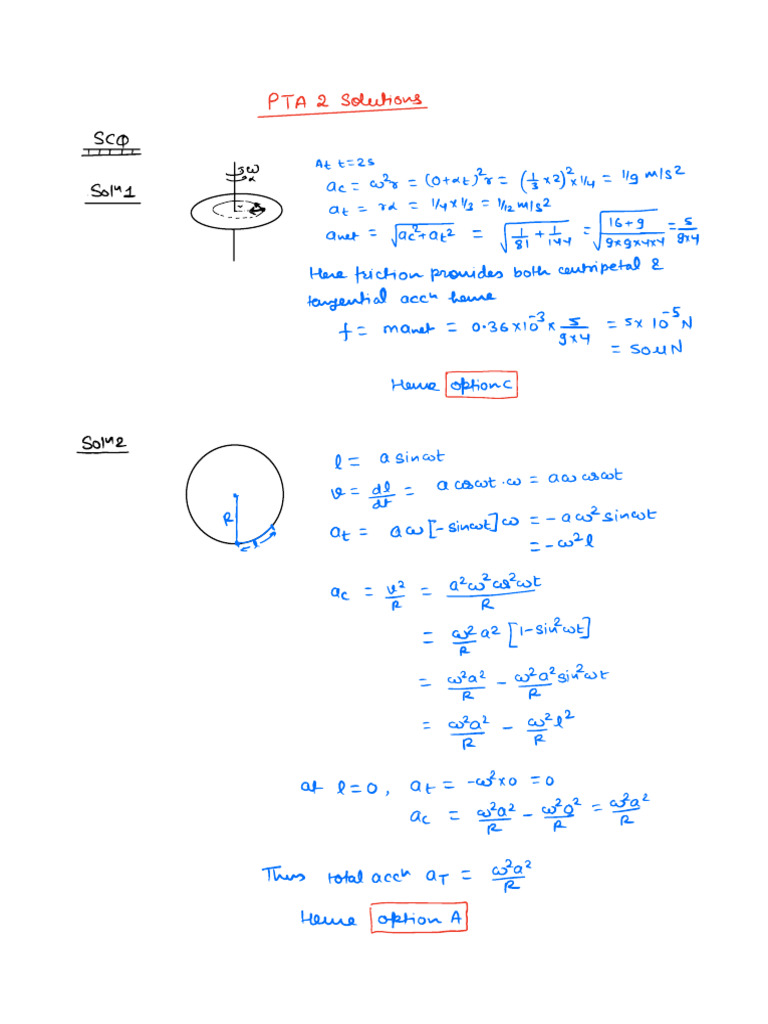 PTA 2 Solutions
SCQ
Solⁿ1
ω
α
r
At t=2s
a_c = ω²r = (0+αt)²r = (1/3 × 2)² × 1/4 = 1/9 m/s²
a_t = rα = 1/4 × 1/3 = 1/12 m/s²
a_net = √(a_c² + a_t²) = √(1/81 + 1/144) = √((16+9)/(9×9×4×4)) = 5/(9×4)
Here friction provides both centripetal &
tangential accⁿ hence
f = ma_net = 0.36×10⁻³ × 5/(9×4) = 5×10⁻⁵ N
= 50 μN
Hence option C
Solⁿ2
R
l
l = a sinωt
v = dl/dt = a cosωt·ω = aω cosωt
a_t = aω[-sinωt]ω = -aω² sinωt
= -ω²l
a_c = v²/R = a²ω²cos²ωt/R
= ω²/R a² [1-sin²ωt]
= ω²a²/R - ω²a²/R sin²ωt
= ω²a²/R - ω²/R l²
at l=0, a_t = -ω²×0 = 0
a_c = ω²a²/R - ω²0²/R = ω²a²/R
Thus total accⁿ a_T = ω²a²/R
Hence option A